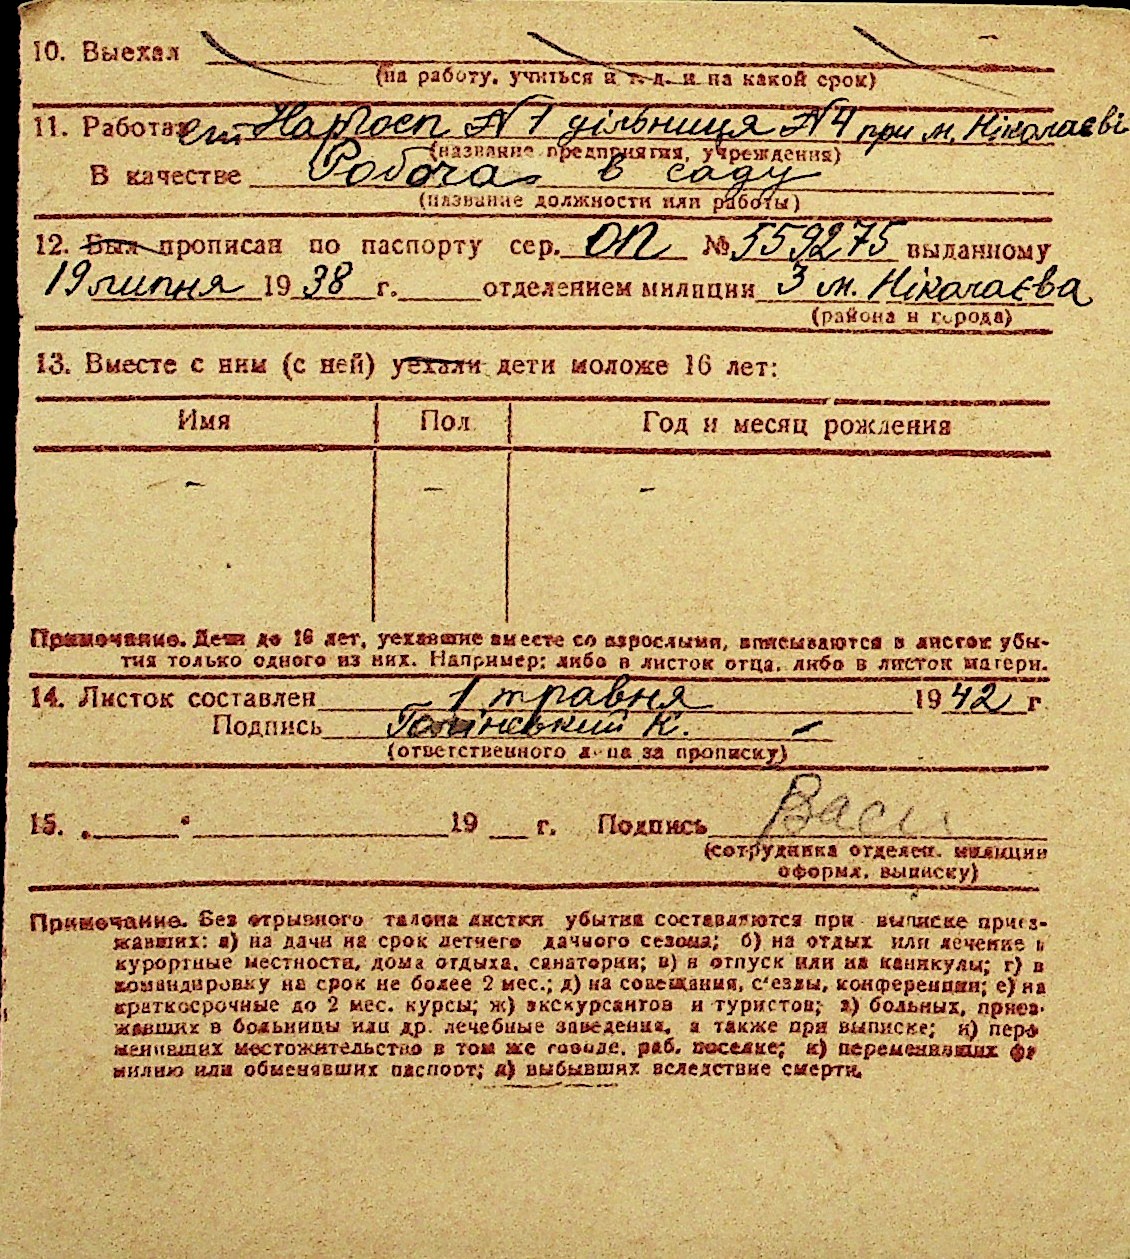 10. Выехал
(на работу, учиться и т. д. и на какой срок)
11. Работает Нархосп № 1 дільниця № 4 при м. Ніколаєві
(название предприятия, учреждения)
В качестве Робоча в саду
(название должности или работы)
12. Был прописан по паспорту сер. ОП № 559275 выданному
19 липня 1938 г. отделением милиции 3 м. Ніколаєва
(района и города)
13. Вместе с ним (с ней) уехали дети моложе 16 лет:
Имя Пол Год и месяц рождения
- - -
Примечание. Дети до 16 лет, уехавшие вместе со взрослыми, вписываются в листок убы-
тия только одного из них. Например: либо в листок отца, либо в листок матери.
14. Листок составлен 1 травня 1942 г
Подпись К.
(ответственного лица за прописку)
15. „ “ 19 г. Подпись
(сотрудника отделен. милиции
оформл. выписку)
Примечание. Без отрывного талона листки убытия составляются при выписке приез-
жавших: а) на дачи на срок летнего дачного сезона; б) на отдых или лечение в
курортные местности, дома отдыха, санатории; в) в отпуск или на каникулы; г) в
командировку на срок не более 2 мес.; д) на совещания, с'езды, конференции; е) на
краткосрочные до 2 мес. курсы; ж) экскурсантов и туристов; з) больных, приез-
жавших в больницы или др. лечебные заведения, а также при выписке; и) пере
менивших местожительство в том же городе, раб. поселке; к) переменивших фа
милию или обменявших паспорт; л) выбывших вследствие смерти.